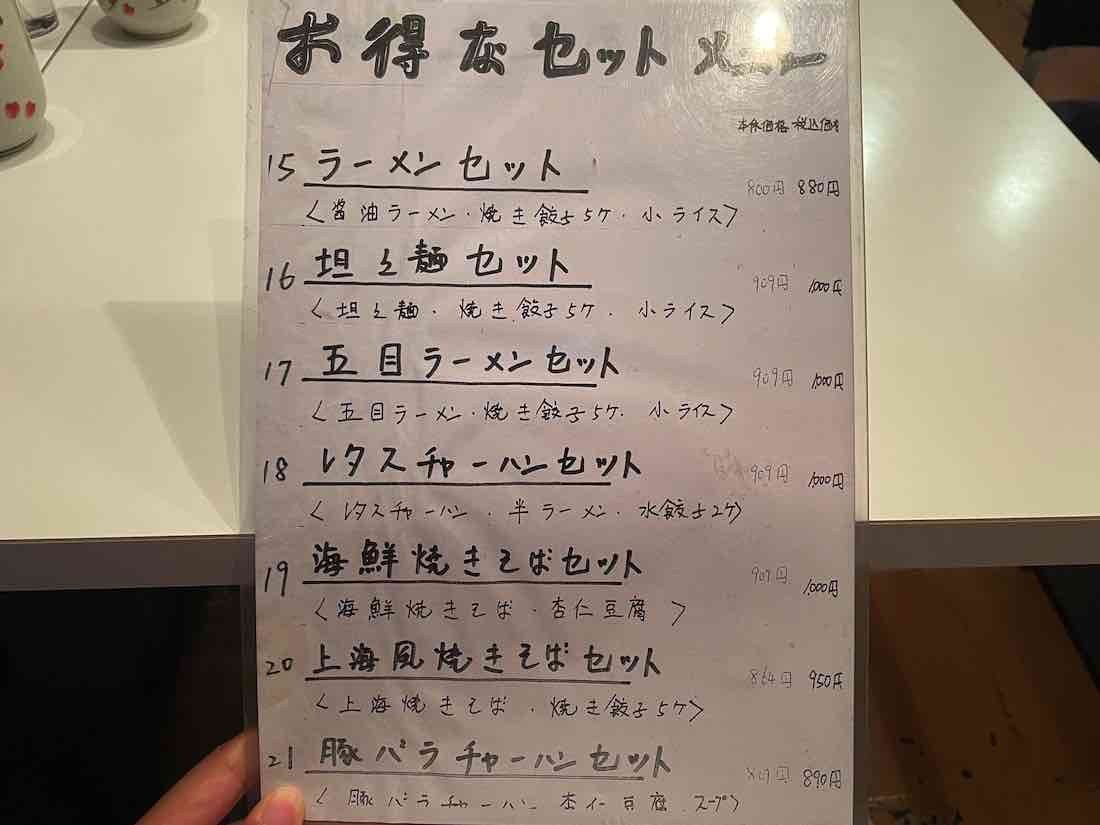 お得なセットメニュー
本体価格 税込価格
15 ラーメンセット 800円 880円
〈醤油ラーメン・焼き餃子5ケ・小ライス〉
16 坦々麺セット 909円 1,000円
〈坦々麺・焼き餃子5ケ・小ライス〉
17 五目ラーメンセット 909円 1,000円
〈五目ラーメン・焼き餃子5ケ・小ライス〉
18 レタスチャーハンセット 909円 1,000円
〈レタスチャーハン・半ラーメン・水餃子2ケ〉
19 海鮮焼きそばセット 909円 1,000円
〈海鮮焼きそば・杏仁豆腐〉
20 上海風焼きそばセット 864円 950円
〈上海焼きそば・焼き餃子5ケ〉
21 豚バラチャーハンセット 890円
〈豚バラチャーハン 杏仁豆腐 スープ〉